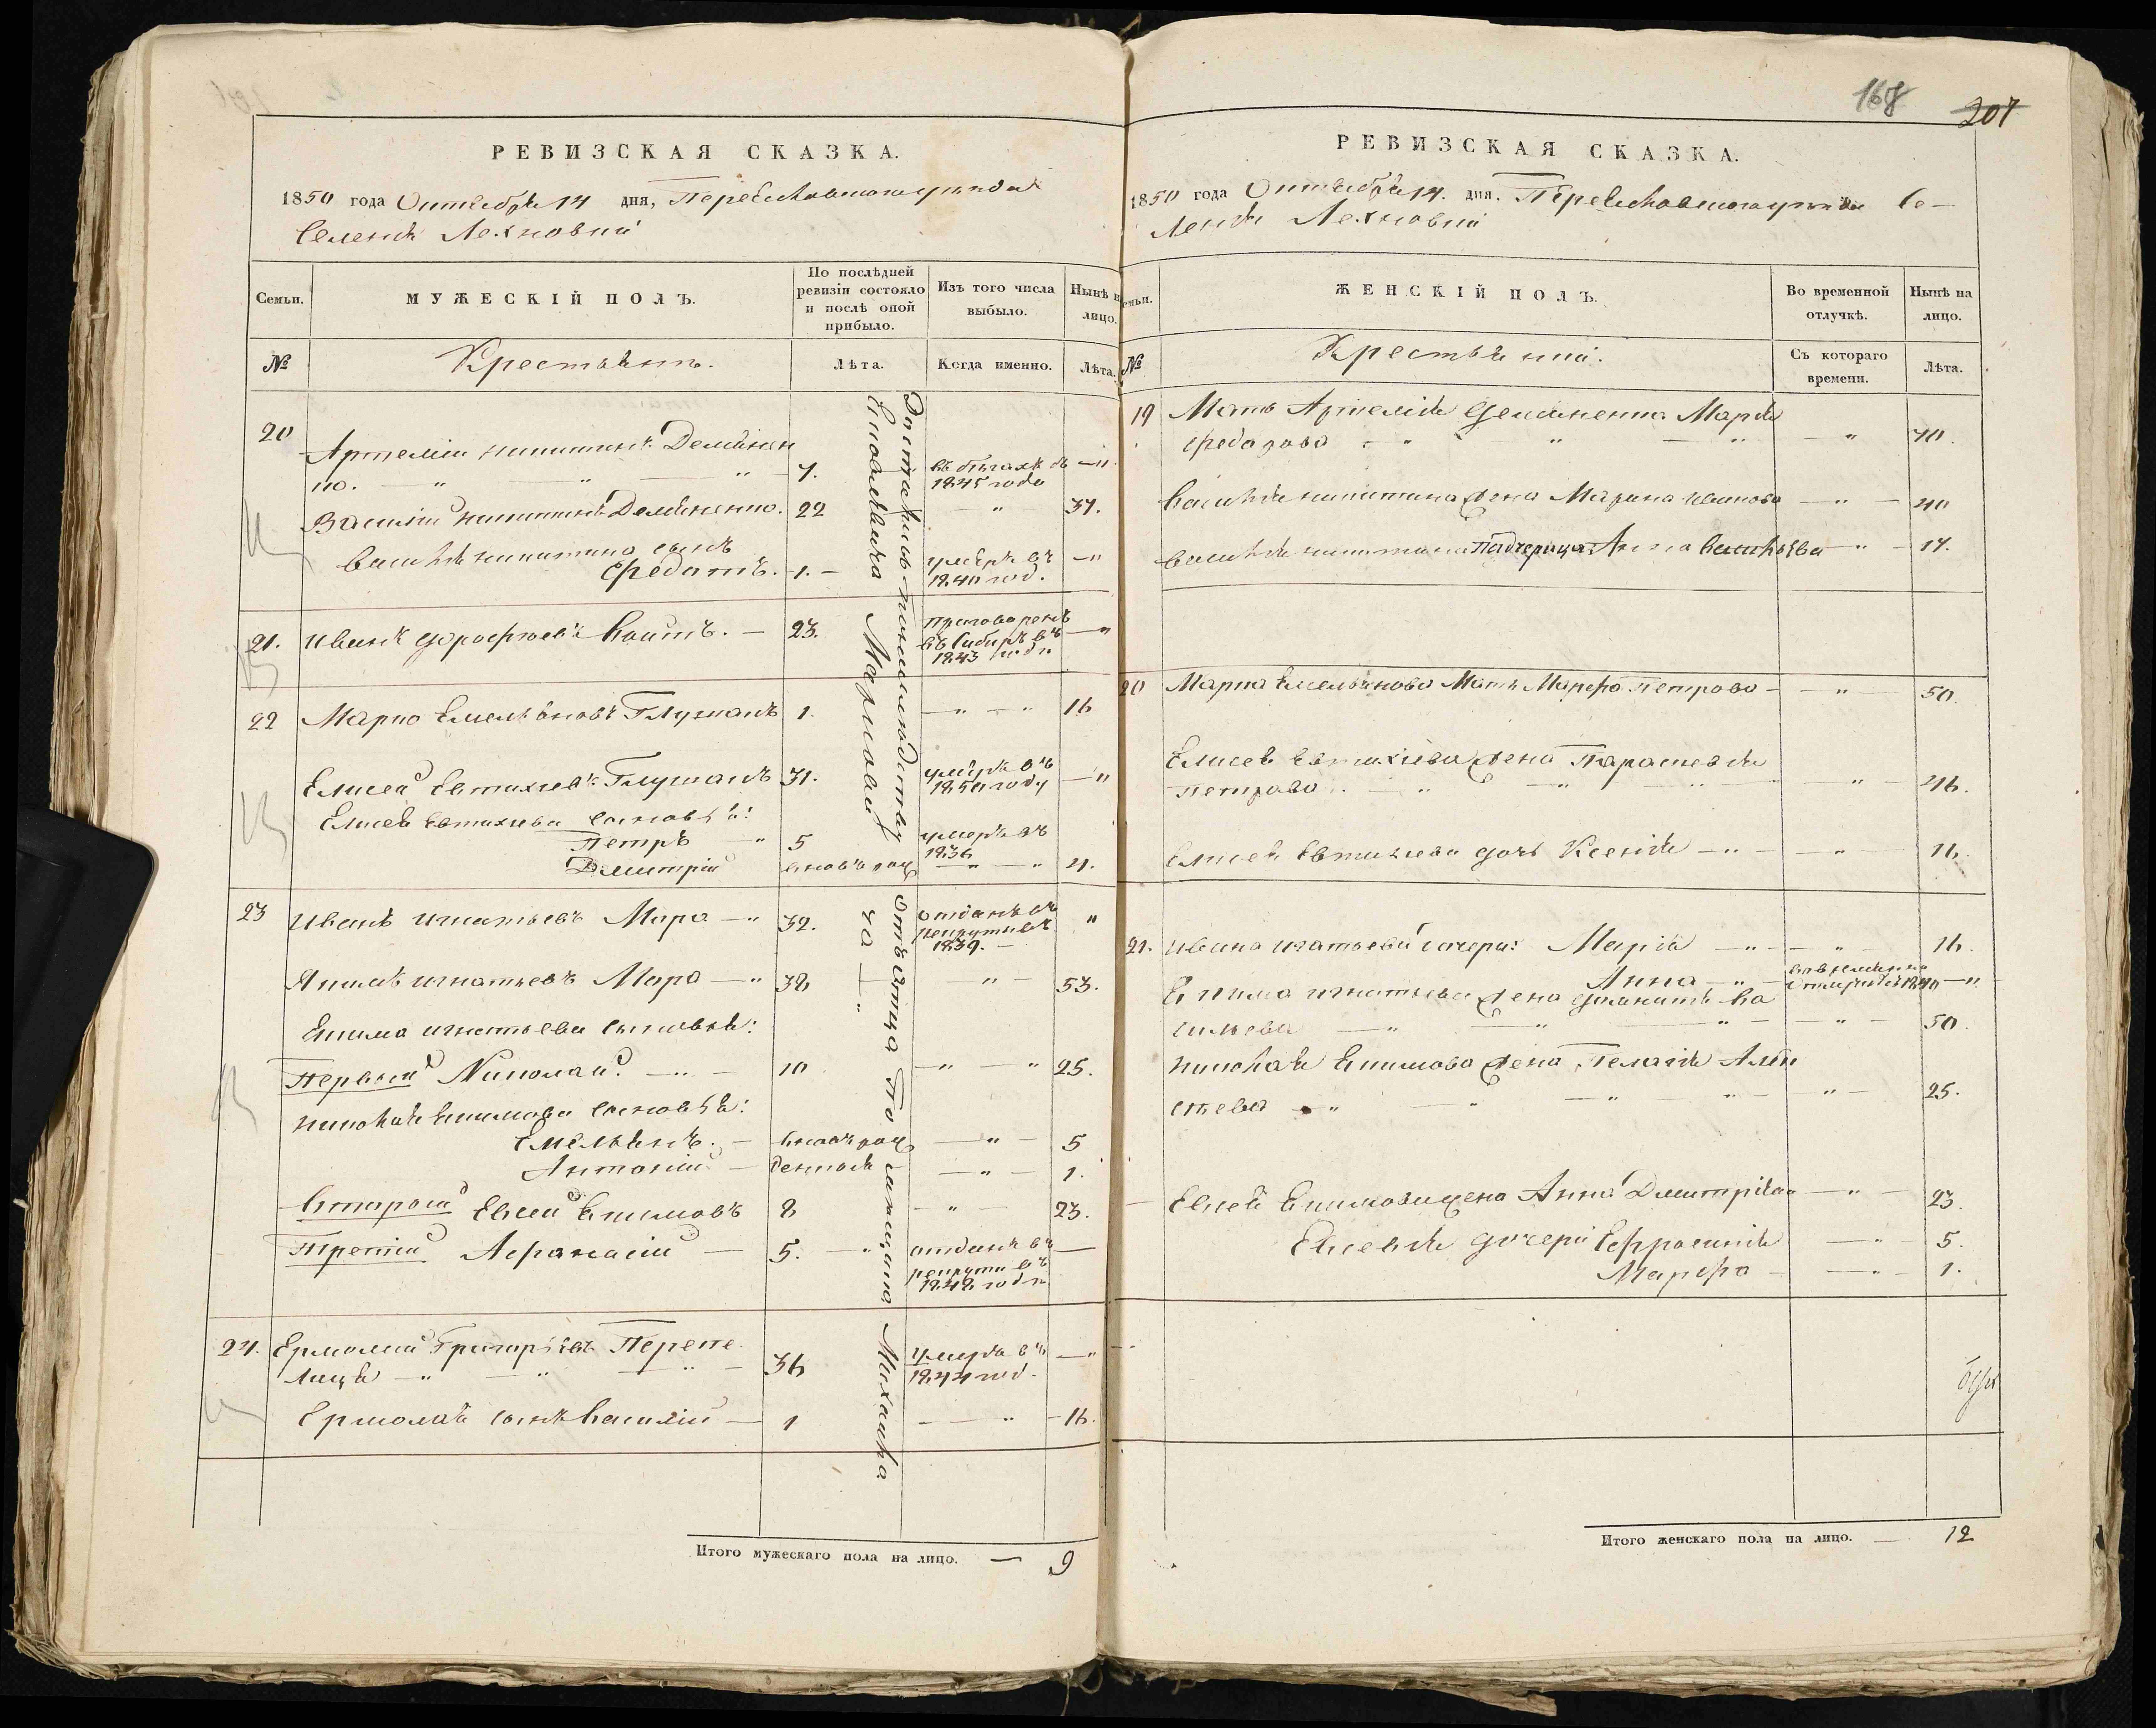 168
207
РЕВИЗСКАЯ СКАЗКА.
1850 года Октября 14 дня, Переяславского уезда
Селения Лехновки
Семьи.
МУЖЕСКІЙ ПОЛЪ.
По послѣдней ревизіи состояло и послѣ оной прибыло.
Изъ того числа выбыло.
Нынѣ на лицо.
№
Крестьянъ.
Лѣта.
Когда именно.
Лѣта.
20
Артемій Никитинъ Демянен
ко. — " " — " 7. въ бѣгахъ съ 1845 года — "
Василій Никитинъ Демяненко. 22 — " 37.
Василія Никитина сынъ
Федотъ. 1. — умеръ въ 1840 год. — "
21. Иванъ Дорофеевъ 23. — приговоренъ въ Сибирь въ 1843 году — "
22 Марко Емельяновъ Глушакъ 1. — " — " 16
Елисей Евтихіевъ Глушакъ 31. умеръ въ 1850 году — "
Елисея Евтихіева сыновья:
Петръ — " 5 умеръ въ 1836
Дмитрій вновь рож — " — " 4.
23 Иванъ Игнатьевъ Мара — " 32. отданъ въ рекруты въ 1839. — "
Якимъ Игнатьевъ Мара — " 38 — " — 53.
Екима Игнатьева сыновья:
Первый Николай — " — 10 — " — " 25.
Николая Екимова сыновья:
Емельянъ. — вновь рож — " — 5
Антоній — денные — " — 1.
Вторый Евсей Екимовъ 8 — " — 23.
Третій Афанасій — 5. " отданъ въ рекруты въ 1848 годъ —
24. Ермолай Григорьевъ Перепе
лица — " — " — " — 36 умеръ въ 1844 год. — "
Ермолая сынъ Василій — 1 — — " — 16.
Достались помѣщику
Марковой
отъ отца
Михаила
Итого мужескаго пола на лицо. — 9
РЕВИЗСКАЯ СКАЗКА.
1850 года Октября 14. дня. Переяславского уезда Се-
ления Лехновки
Семьи.
ЖЕНСКІЙ ПОЛЪ.
Во временной отлучкѣ.
Нынѣ на лицо.
№
Крестьянки.
Съ котораго времени.
Лѣта.
19 Мать Артемія Демяненка Марія
Федорова — " " — " — " 70.
Василія Никитина жена Марина Иванова — " — 40
Василія Никитина падчерица Анна Васильева — " — 17.
20 Марка Емельянова мать Марфа Петрова — — " — 50.
Елисея Евтихіева жена Параскевія
Петрова. — " — " — " — " — 46.
Елисея Евтихіева дочь Ксенія — " — — " — 16.
21. Ивана Игнатьева дочери: Марія — " — — " — 16.
Анна — " — — "
Екима Игнатьева жена Ва
сильева — " — " — " — " — 50.
Николая Екимова жена Пелагія Алек
сѣева — " — " — " — " — 25.
Евсея Екимова жена Анна Дмитріева — " — 23.
Евсевія дочери Ефросинія — " — 5.
Марфа — — " — 1.
Итого женскаго пола на лицо. — 12